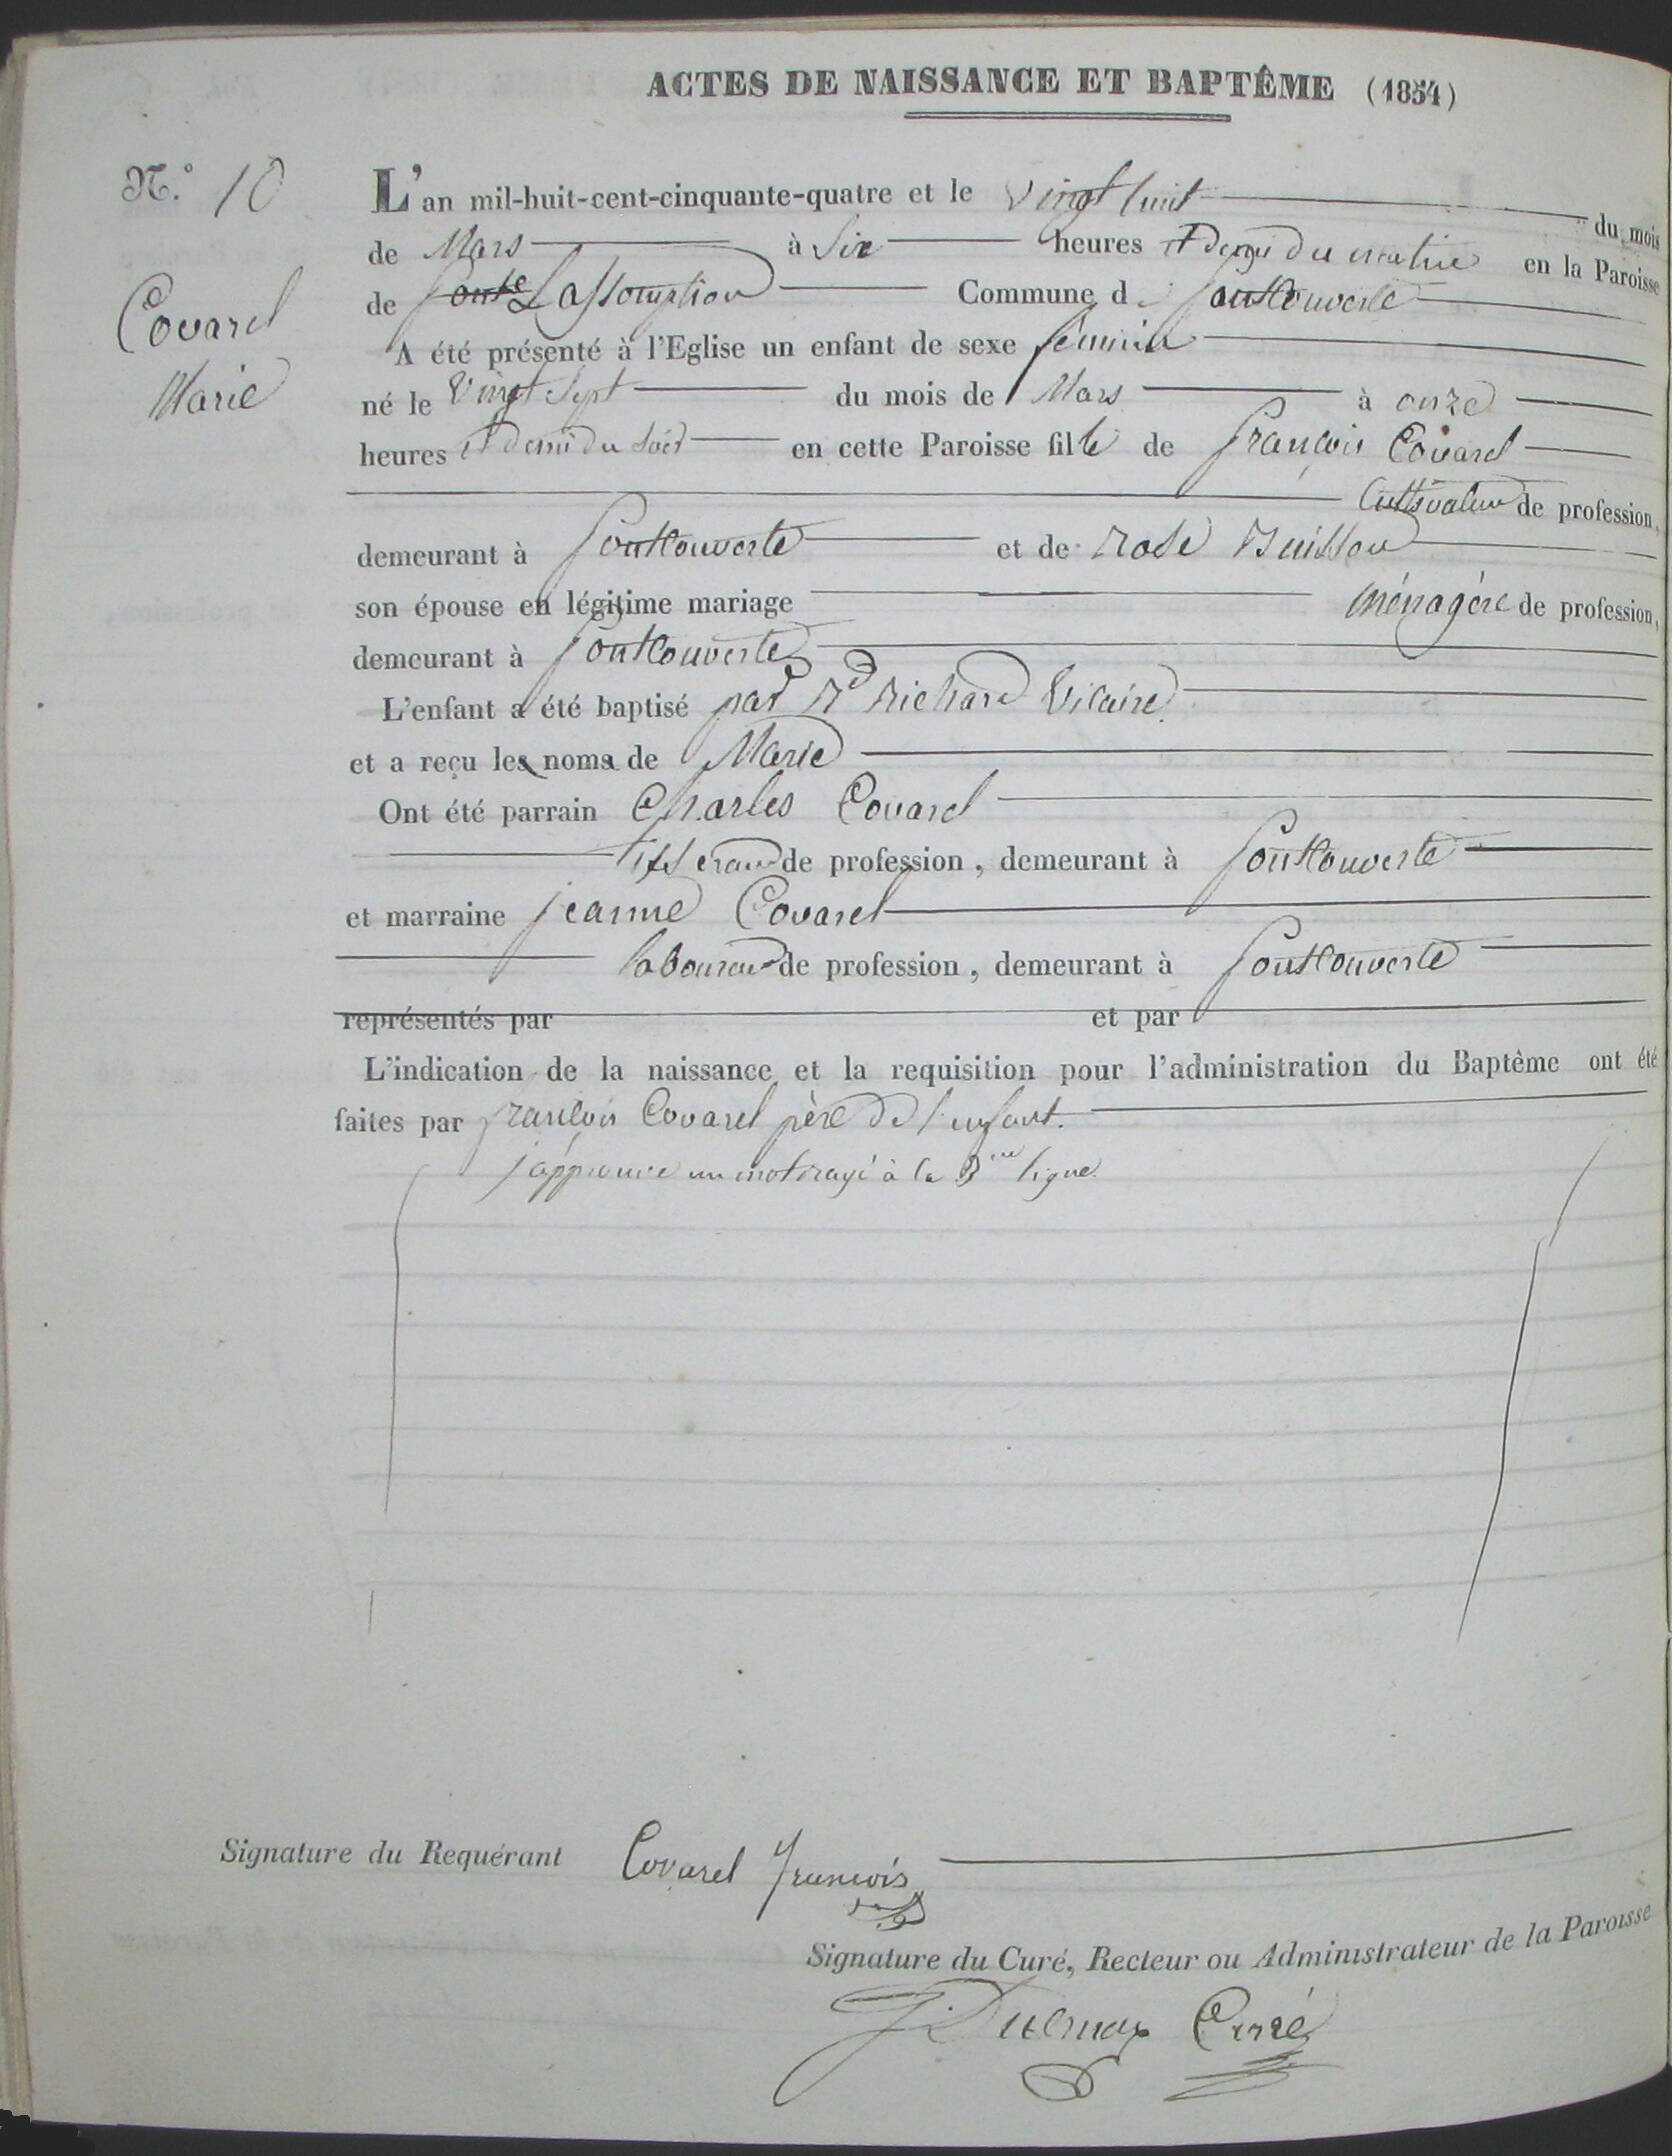 ACTES DE NAISSANCE ET BAPTÊME (1854)
N.° 10
Covarel
Marie
L'an mil-huit-cent-cinquante-quatre et le vingt huit du mois
de Mars à Six heures et demi du matin en la Paroisse
de Fonte Lassomption Commune de Fontcouverte
A été présenté à l'Eglise un enfant de sexe féminin
né le vingt sept du mois de Mars à onze
heures et demi du soir en cette Paroisse fille de françois Covarel
Cultivateur de profession,
demeurant à Fontcouverte et de Rose Buisson
son épouse en légitime mariage ménagère de profession,
demeurant à Fontcouverte
L'enfant a été baptisé par Rd Richard Vicaire
et a reçu les noms de Marie
Ont été parrain Charles Covarel
tisserand de profession, demeurant à Fontcouverte
et marraine jeanne Covarel
laboureur de profession, demeurant à Fontcouverte
représentés par et par
L'indication de la naissance et la requisition pour l'administration du Baptême ont été
faites par françois Covarel père de l'enfant.
j'approuve un mot rayé à la 3me ligne.
Signature du Requérant Covarel françois
Signature du Curé, Recteur ou Administrateur de la Paroisse
Curé